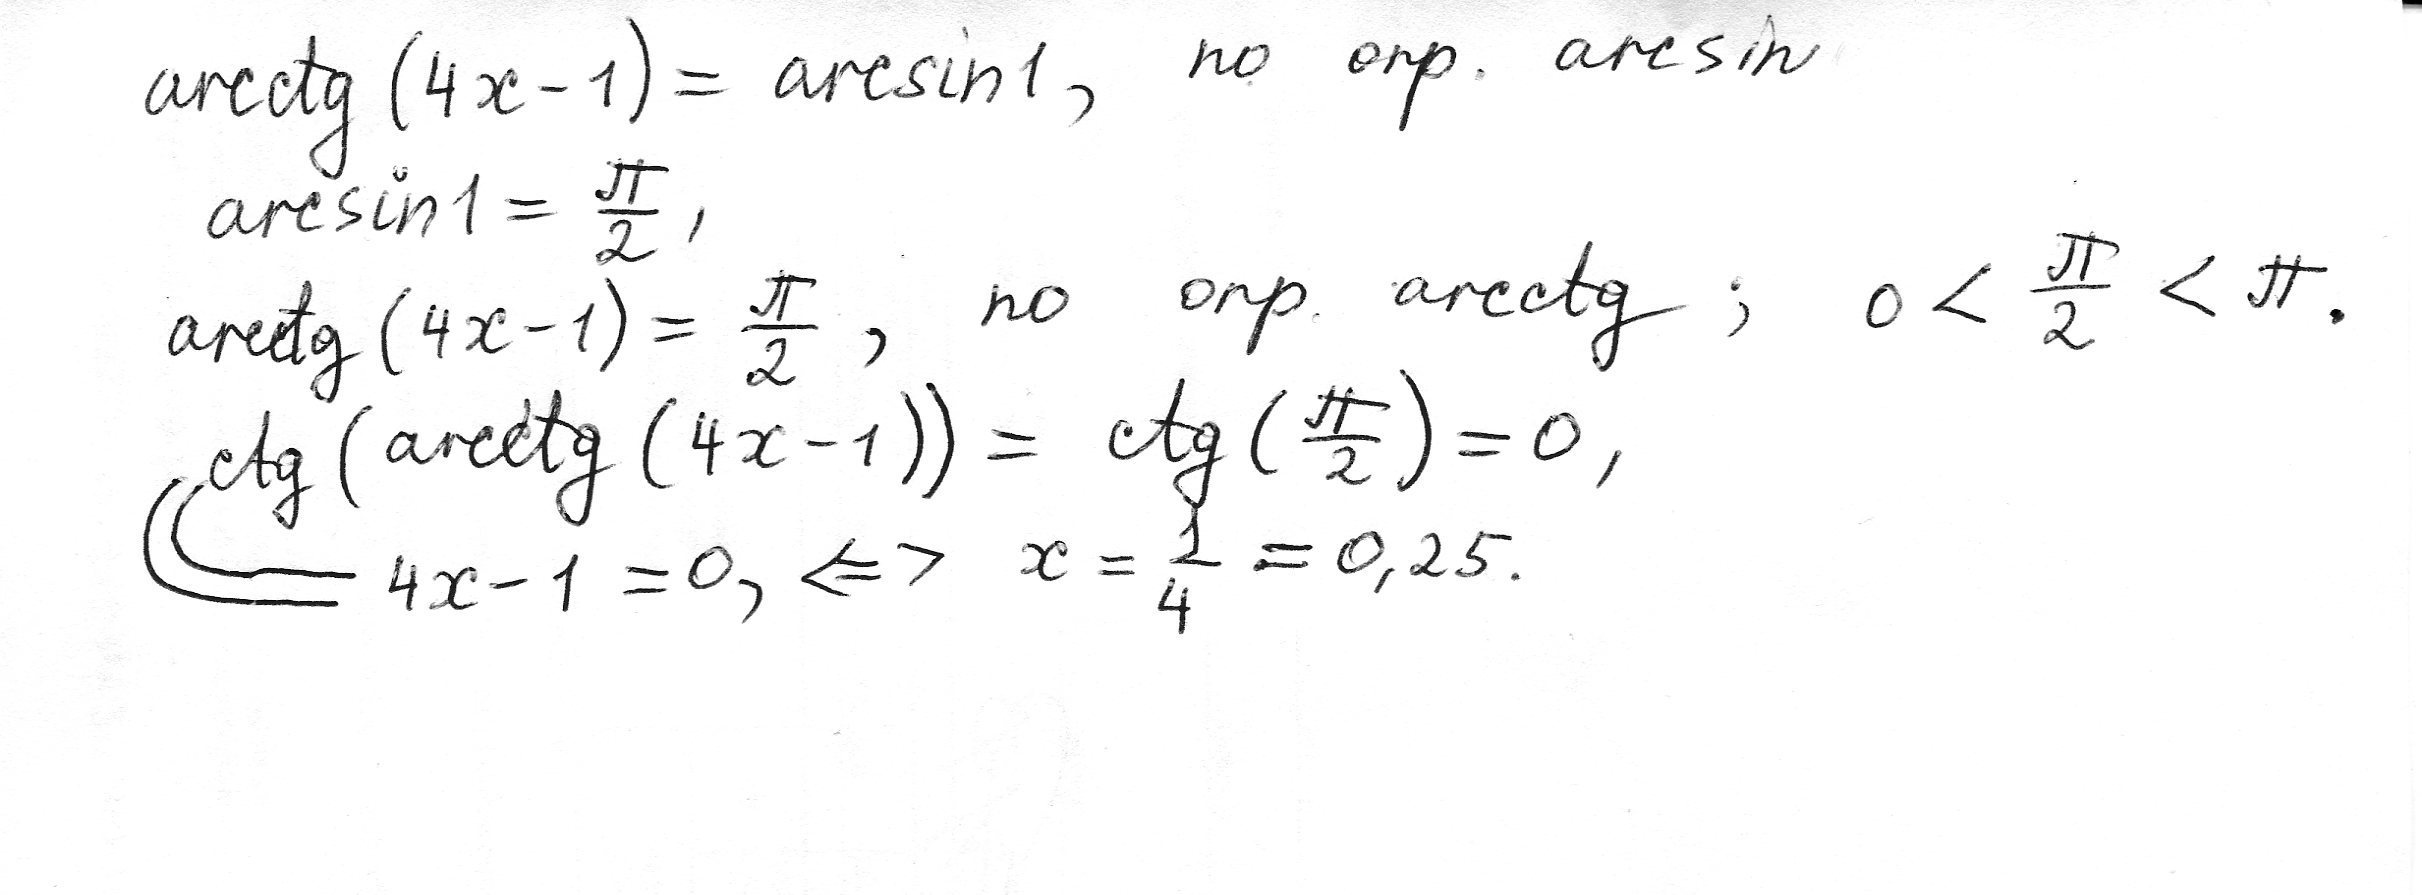 arcctg (4x-1) = arcsin1, по опр. arcsin
arcsin1 = π/2,
arcctg (4x-1) = π/2, по опр. arcctg; 0 < π/2 < π.
ctg (arcctg (4x-1)) = ctg (π/2) = 0,
4x-1 = 0, <=> x = 1/4 = 0,25.